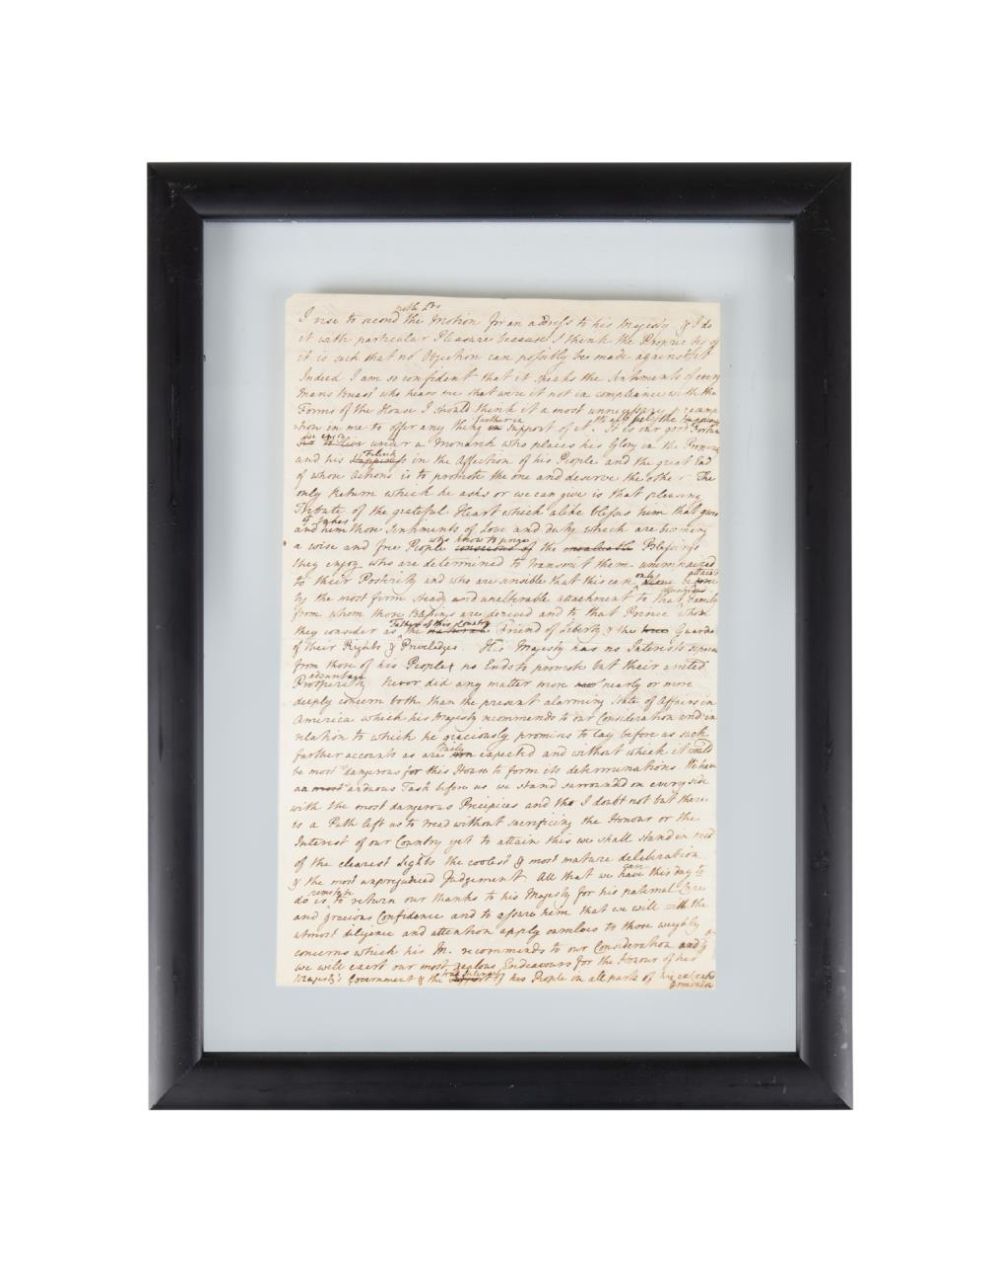 I rise to second the Motion for an address to his Majesty & I do
it with particular Pleasure because I think the Propriety of
it is such that no Objection can possibly be made against it
Indeed I am so confident that it speaks the sentiments of every
mans breast who hears me that were it not in compliance with the
Forms of the House I should think it a most unnecessary
in me to offer any thing further in support of it. It is our good Fortune
under a Monarch who places his Glory in the
and his in the Affection of his People and the great End
of whose actions is to promote the one and deserve the other. The
only Return which he asks or we can give is that pleasing
Tribute of the grateful Heart which alike blesses him that gives
and him that takes those sentiments of Love and duty which are
a wise and free People who know to the Blessings
they enjoy who are determined to transmit them unimpaired
to their Posterity and who are sensible that this can only be
by the most firm steady and unalterable attachment to that Family
from whom those Blessings are derived and to that Prince whom
they consider as the Father of this Country Friend of Liberty & the Guardian
of their Rights & Priviledges. His Majesty has no Interests separate
from those of his People, no Ends to promote but their united
Prosperity never did any matter more nearly or more
deeply concern both than the present alarming State of Affairs in
America which his Majesty recommends to our Consideration and in
relation to which he graciously promises to lay before us such
further accounts as are daily expected and without which it would
be most dangerous for this House to form its determinations We have
an arduous Task before us we stand surrounded on every side
with the most dangerous Precipices and tho I doubt not but there
is a Path left us to tread without sacrificing the Honour or the
Interest of our Country yet to attain this we shall stand in need
of the clearest Lights the coolest & most mature deliberation
& the most unprejudiced Judgement All that we can this day to
do is to return our thanks to his Majesty for his paternal Care
and gracious Confidence and to assure him that we will with the
utmost diligence and attention apply ourselves to those weighty
concerns which his M. recommends to our Consideration and
we will exert our most zealous Endeavours for the Honour of his
Majesty's Government & the of his People in all parts of his extensive
dominions